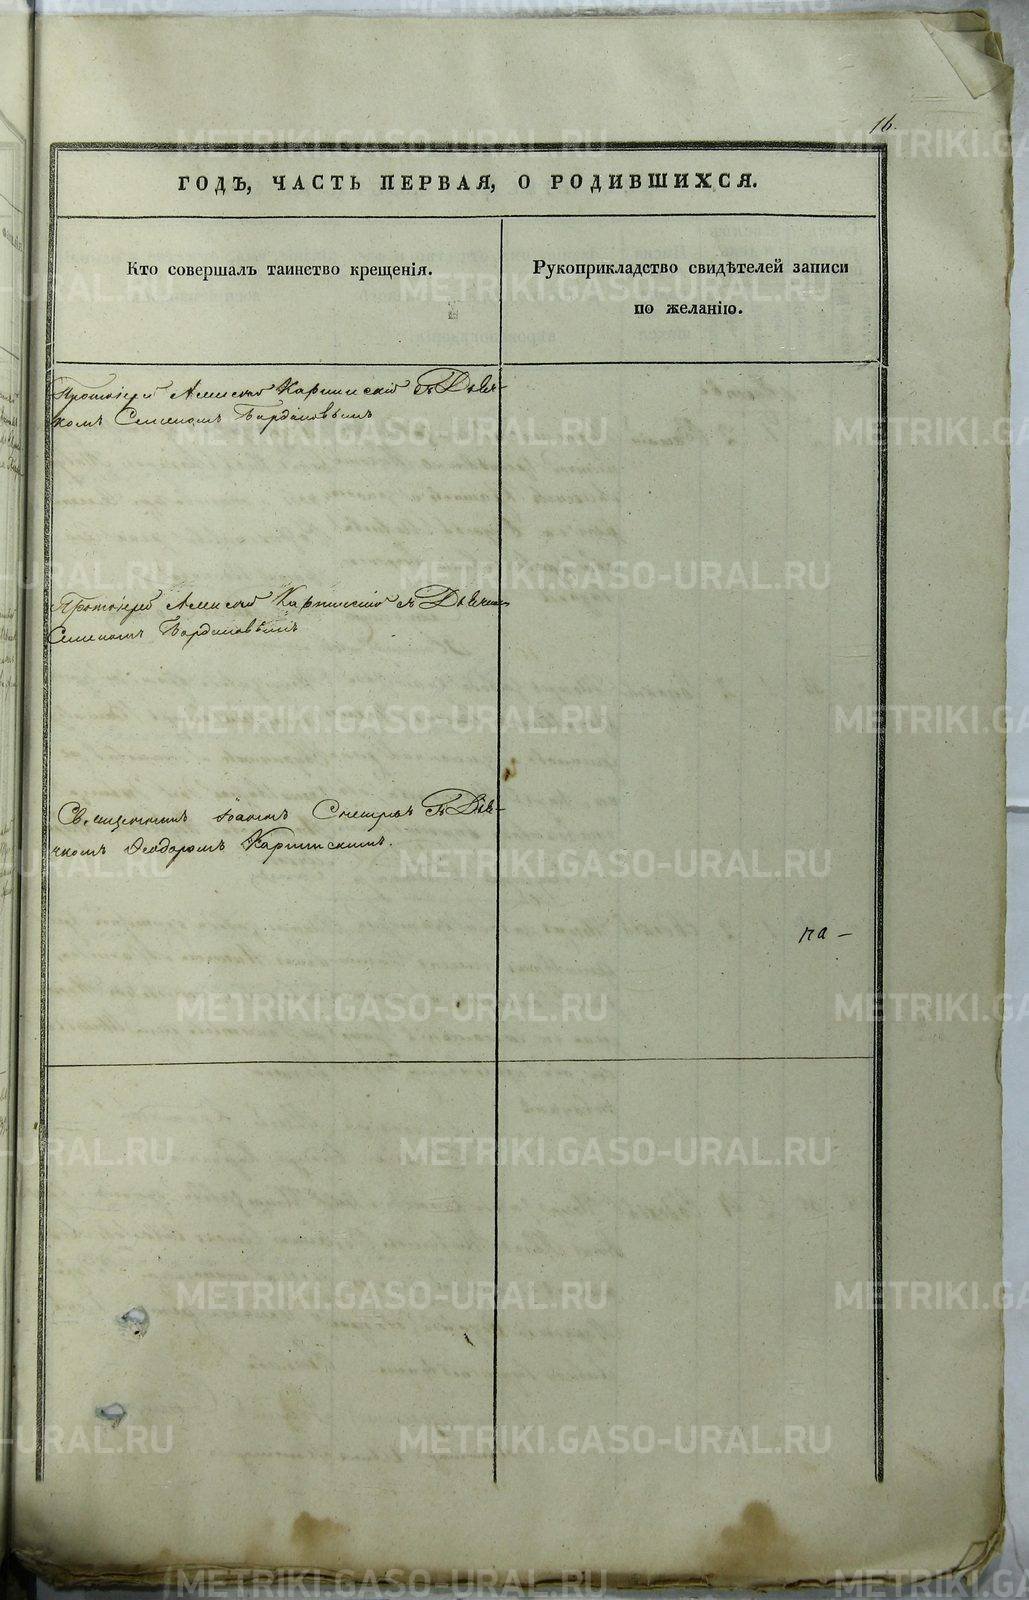 16.
ГОДЪ, ЧАСТЬ ПЕРВАЯ, О РОДИВШИХСЯ.
Кто совершалъ таинство крещенія.
Рукоприкладство свидѣтелей записи
по желанію.
Протоіерей Алексѣй Карпинскій съ Дьяч-
комъ Семеномъ Бардановымъ
Протоіерей Алексѣй Карпинскій съ Дьячкомъ
Семеномъ Бардановымъ
Священникъ Іоаннъ съ Дьяч-
комъ Ѳеодоромъ Карпинскимъ.
па-
METRIKI.GASO-URAL.RU